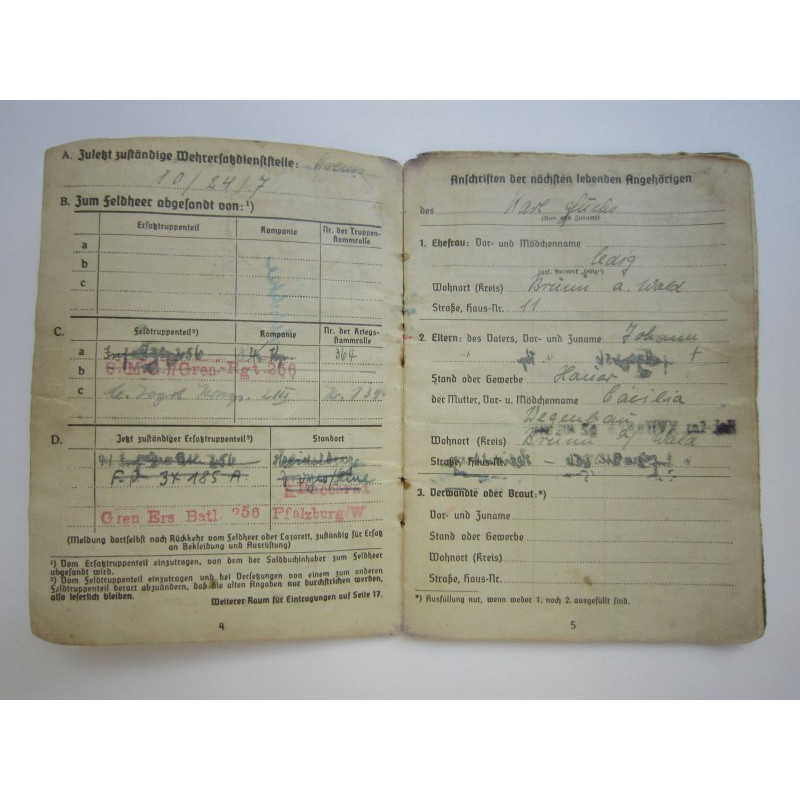 A. Zuletzt zuständige Wehrersatzdienststelle: Krems
10/24/7
B. Zum Feldheer abgesandt von:¹)
Ersatztruppenteil Kompanie Nr. der Truppenstammrolle
a
b
c
C. Feldtruppenteil²) Kompanie Nr. der Kriegsstammrolle
a 256 364
b Gren-Rgt 256
c
D. Jetzt zuständiger Ersatztruppenteil²) Standort
256
F.P. 34185 A.
Gren Ers Batl. 256 Pfalzburg/W
(Meldung dortselbst nach Rückkehr vom Feldheer oder Lazarett, zuständig für Ersatz
an Bekleidung und Ausrüstung)
¹) Vom Ersatztruppenteil einzutragen, von dem der Soldbuchinhaber zum Feldheer
abgesandt wird.
²) Vom Feldtruppenteil einzutragen und bei Versetzungen von einem zum anderen
Feldtruppenteil derart abzuändern, daß die alten Angaben nur durchstrichen werden,
also leserlich bleiben.
Weiterer Raum für Eintragungen auf Seite 17.
4
Anschriften der nächsten lebenden Angehörigen
des Karl Fuchs
(Vor- und Zuname)
1. Ehefrau: Vor- und Mädchenname
ledig
(ggf. Vermerk „ledig“)
Wohnort (Kreis) Brunn a. Wald
Straße, Haus-Nr. 11
2. Eltern: des Vaters, Vor- und Zuname Johann
Stand oder Gewerbe
der Mutter, Vor- u. Mädchenname Cäcilia
Wohnort (Kreis) Brunn a/ Wald
Straße, Haus-Nr.
3. Verwandte oder Braut:*)
Vor- und Zuname
Stand oder Gewerbe
Wohnort (Kreis)
Straße, Haus-Nr.
*) Ausfüllung nur, wenn weder 1. noch 2. ausgefüllt sind.
5